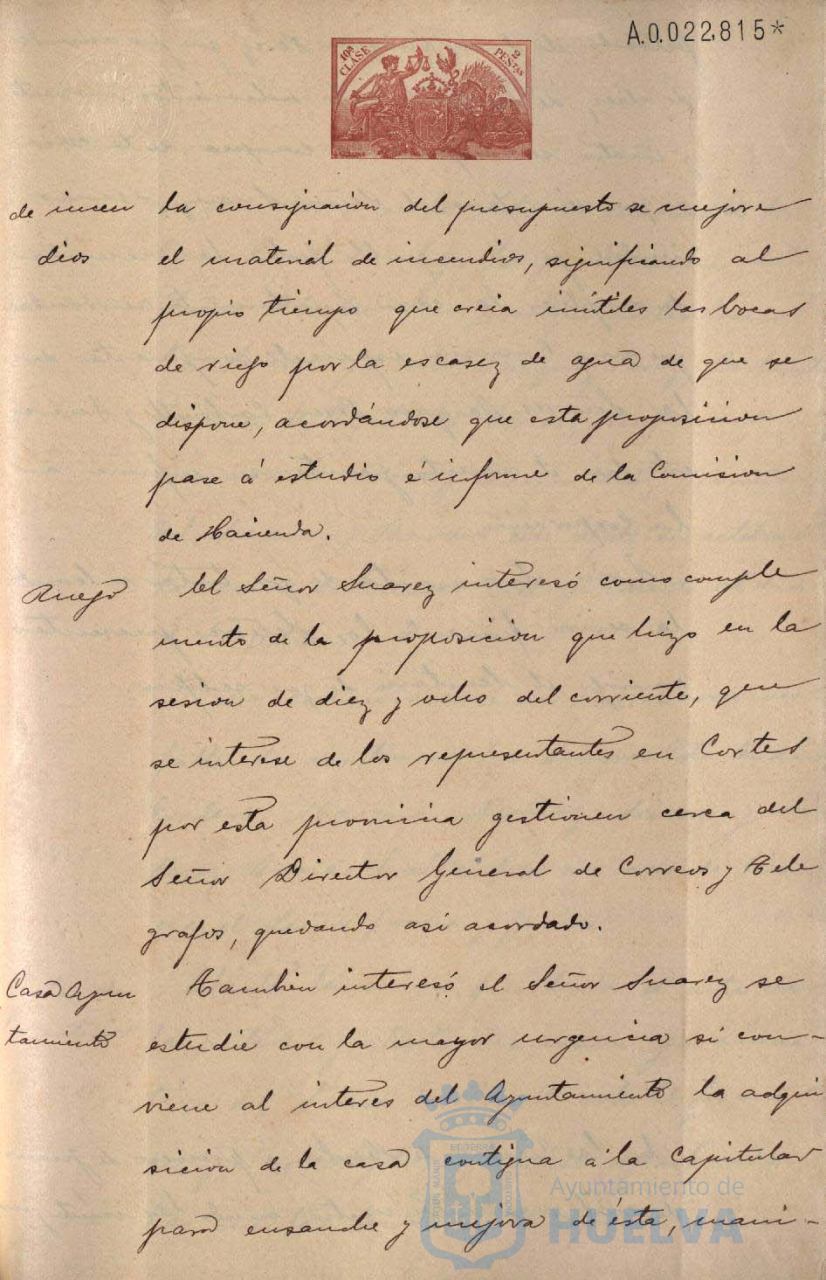 A.0.022.815*
10ª CLASE
2 PESETAS
de incen
dios
la consignacion del presupuesto se mejore
el material de incendios, significando al
propio tiempo que creia inútiles las bocas
de riego por la escasez de agua de que se
dispone, acordándose que esta proposicion
pase á estudio é informe de la Comision
de Hacienda.
Ruego
El Señor Suarez interesó como comple
mento de la proposicion que hizo en la
sesion de diez y ocho del corriente, que
se interese de los representantes en Cortes
por esta provincia gestionen cerca del
Señor Director General de Correos y Tele
grafos, quedando asi acordado.
Casa Ayun
tamiento
Tambien interesó el Señor Suarez se
estudie con la mayor urgencia si con-
viene al interes del Ayuntamiento la adqui
sicion de la casa contigua á la Capitular
para ensanche y mejora de ésta, mani-
Ayuntamiento de
HUELVA